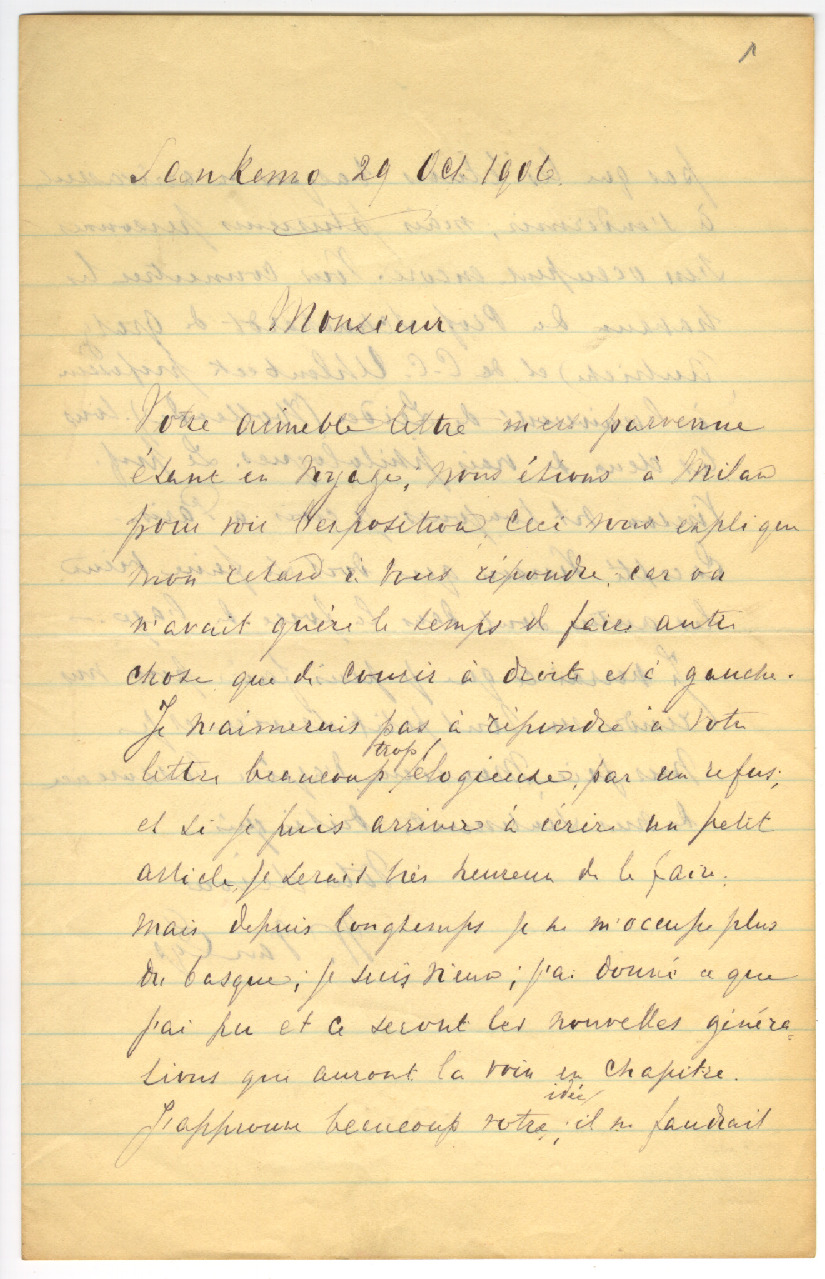 1
San Remo 29 Oct. 1906.
Monsieur
Votre aimable lettre m'est parvenue
étant en voyage; nous étions à Milan
pour voir l'exposition. Ceci vous explique
mon retard à vous répondre, car on
n'avait guère le temps de faire autre
chose que de courir à droite et à gauche.
Je n'aimerais pas à répondre à votre
lettre beaucoup trop élogieuse, par un refus;
et si je puis arriver à écrire un petit
article, je serais très heureux de le faire.
mais depuis longtemps je ne m'occupe plus
du basque; je suis vieux; j'ai donné ce que
j'ai pu et ce seront les nouvelles généra-
tions qui auront la voix en chapitre.
J'approuve beaucoup votre idée; il ne faudrait